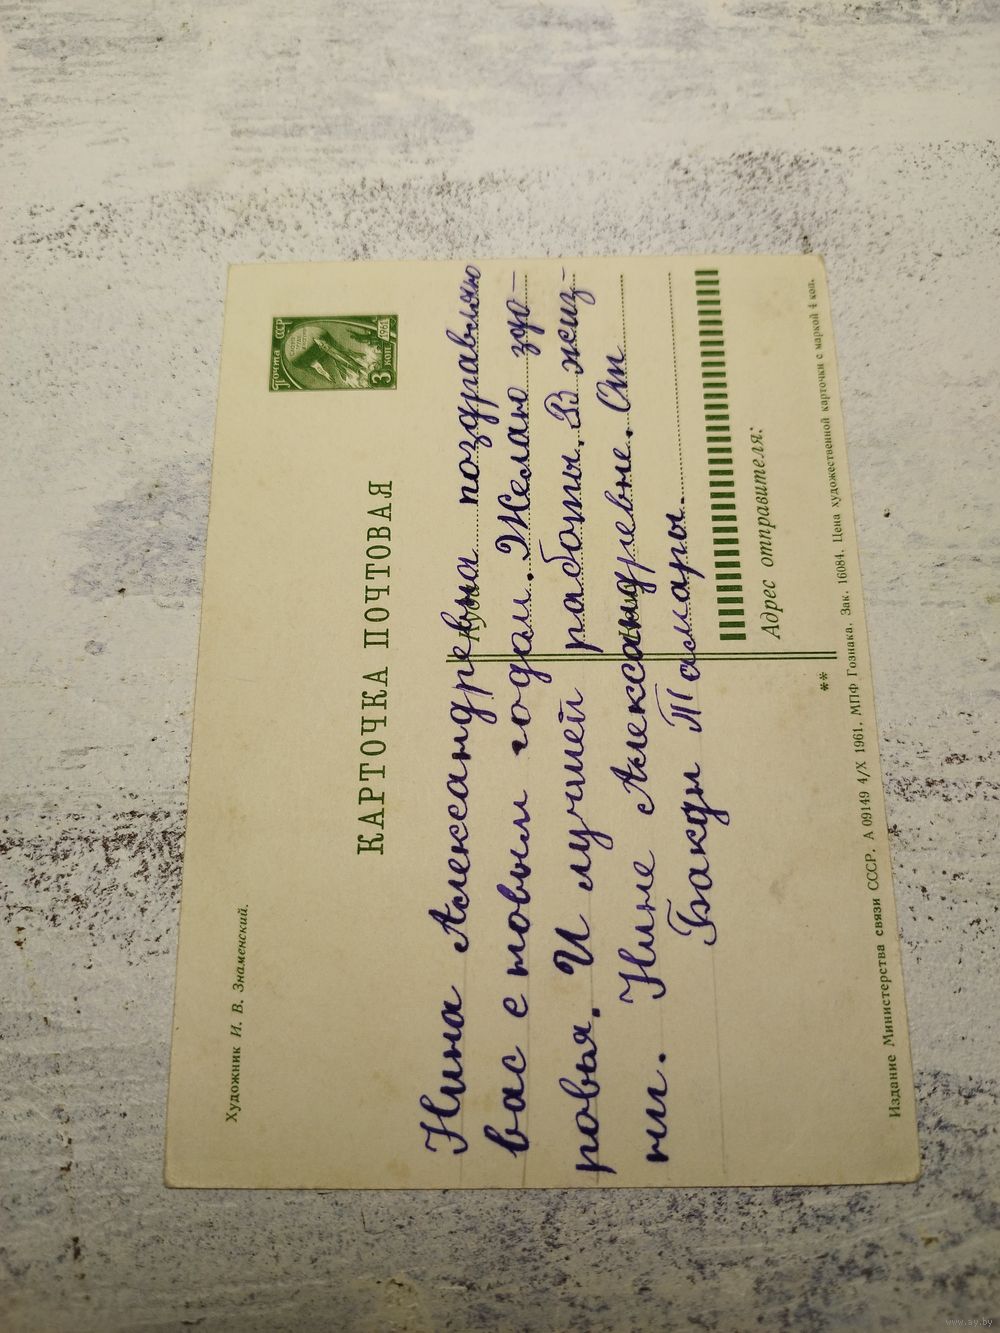 Художник И. В. Знаменский.
Почта СССР
1961
3 коп
КАРТОЧКА ПОЧТОВАЯ
Куда
Нина Александревна поздравляю
вас с новым годам. Желаю здо-
ровья. И лучшей работы. В жиз-
ни. Нине Александревне. От
Бакды Тамары.
Адрес отправителя:
**
Издание Министерства связи СССР. А 09149 4/X 1961. МПФ Гознака. Зак. 16084. Цена художественной карточки с маркой 4 коп.
www.ay.by